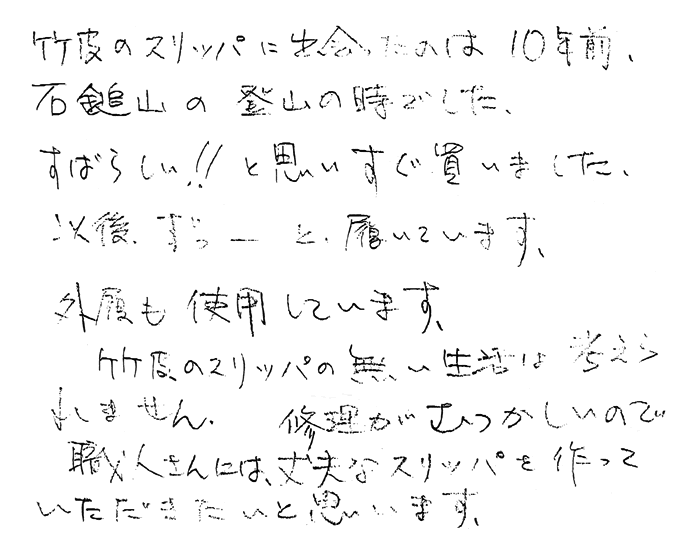 竹皮のスリッパに出会ったのは10年前、
石鎚山の登山の時でした、
すばらしい!!と思いすぐ買いました、
以後、ずっーと、履いています、
外履も使用しています、
竹皮のスリッパの無い生活は考えら
れません、修理がむつかしいので
職人さんには、丈夫なスリッパを作って
いただきたいと思います、